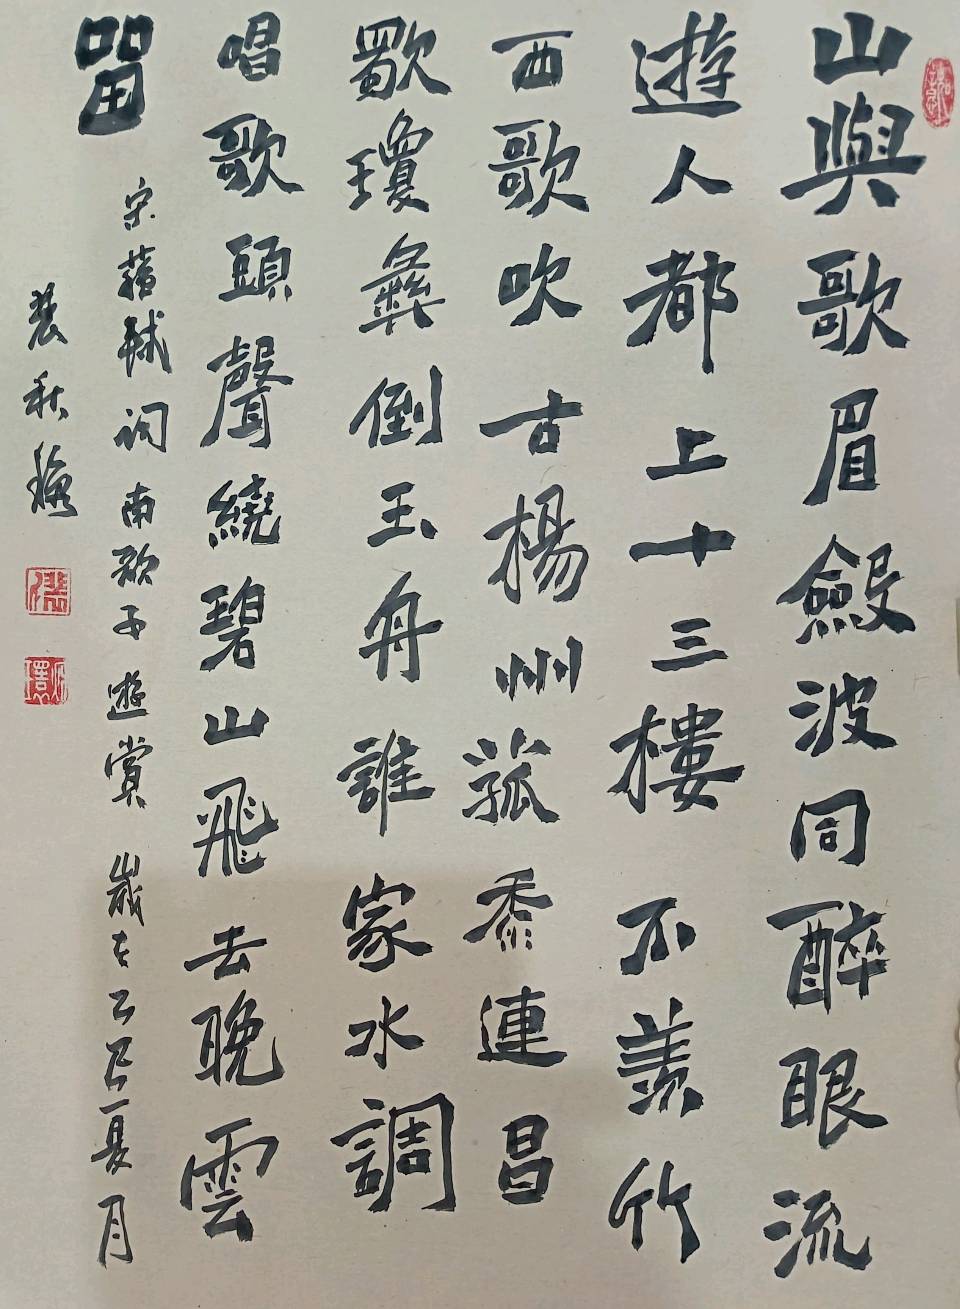 山與歌眉斂波同醉眼流
遊人都上十三樓不羨竹
西歌吹古楊州菰黍連昌
歜瓊彝倒玉舟誰家水調
唱歌頭聲繞碧山飛去晚雲
留
宋蘇軾詞南歌子遊賞 歲在乙巳夏月
秋